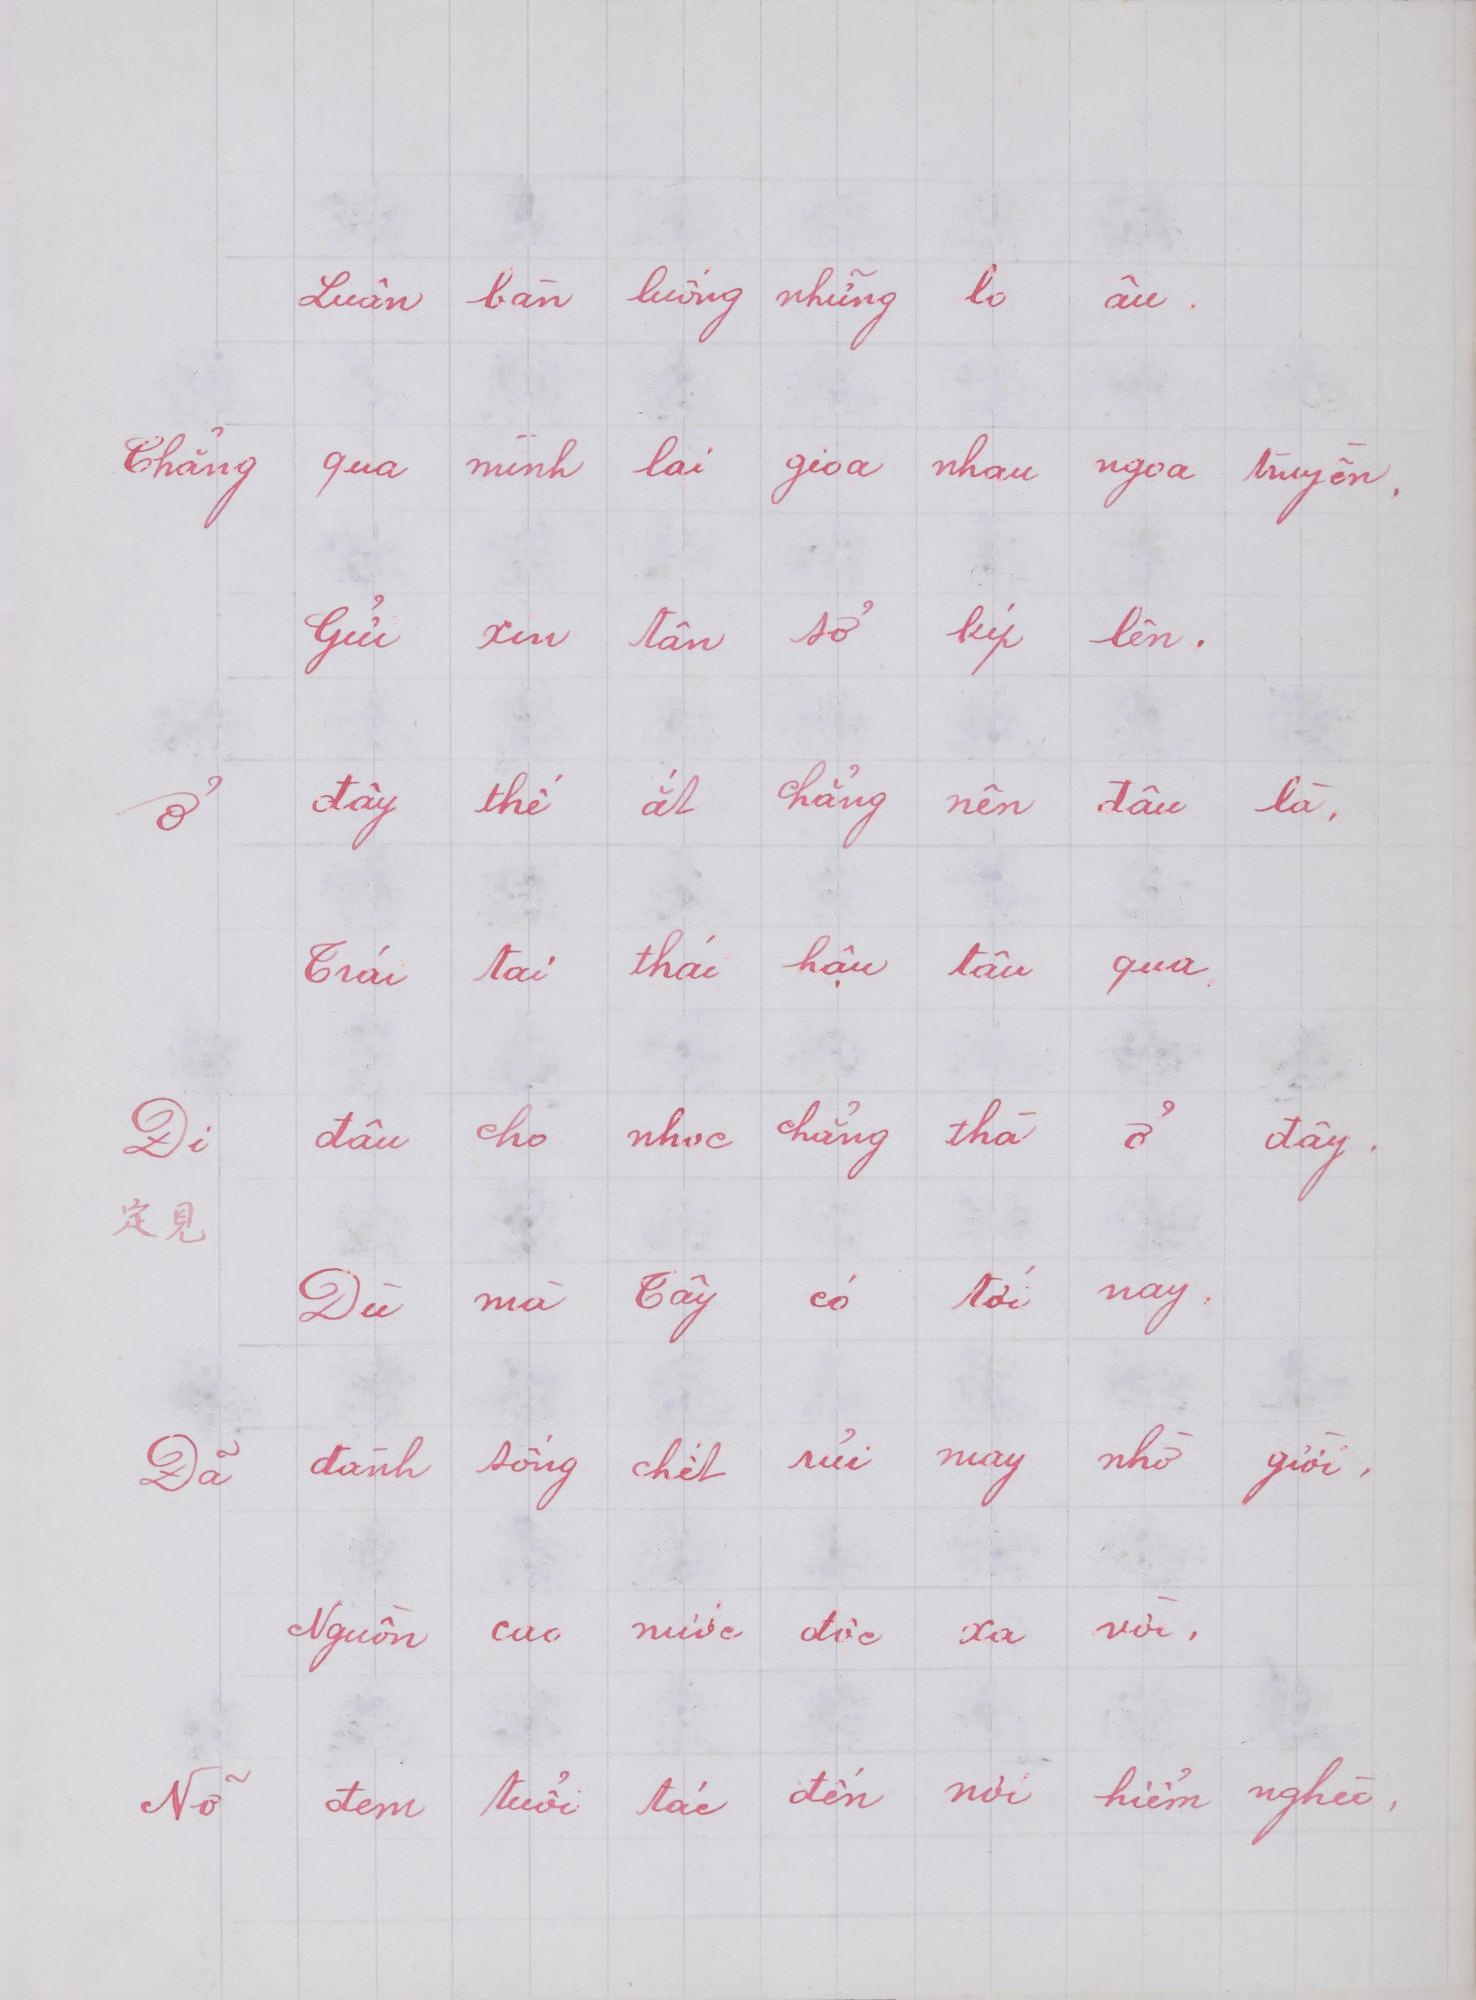 Luân bàn luống những lo âu.
Chẳng qua mình lai gioa nhau ngoa truyền,
Gửi xin tân sở kíp lên.
Ở đây thế ắt chẳng nên đâu là,
Trái tai thái hậu tâu qua,
Đi đâu cho nhọc chẳng thà ở đây.
定見
Dù mà Tây có tới nay.
Đã đành sống chết rủi may nhờ giời,
Nguồn cao nước độc xa vời,
Nỡ đem tuổi tác đến nơi hiểm nghèo,